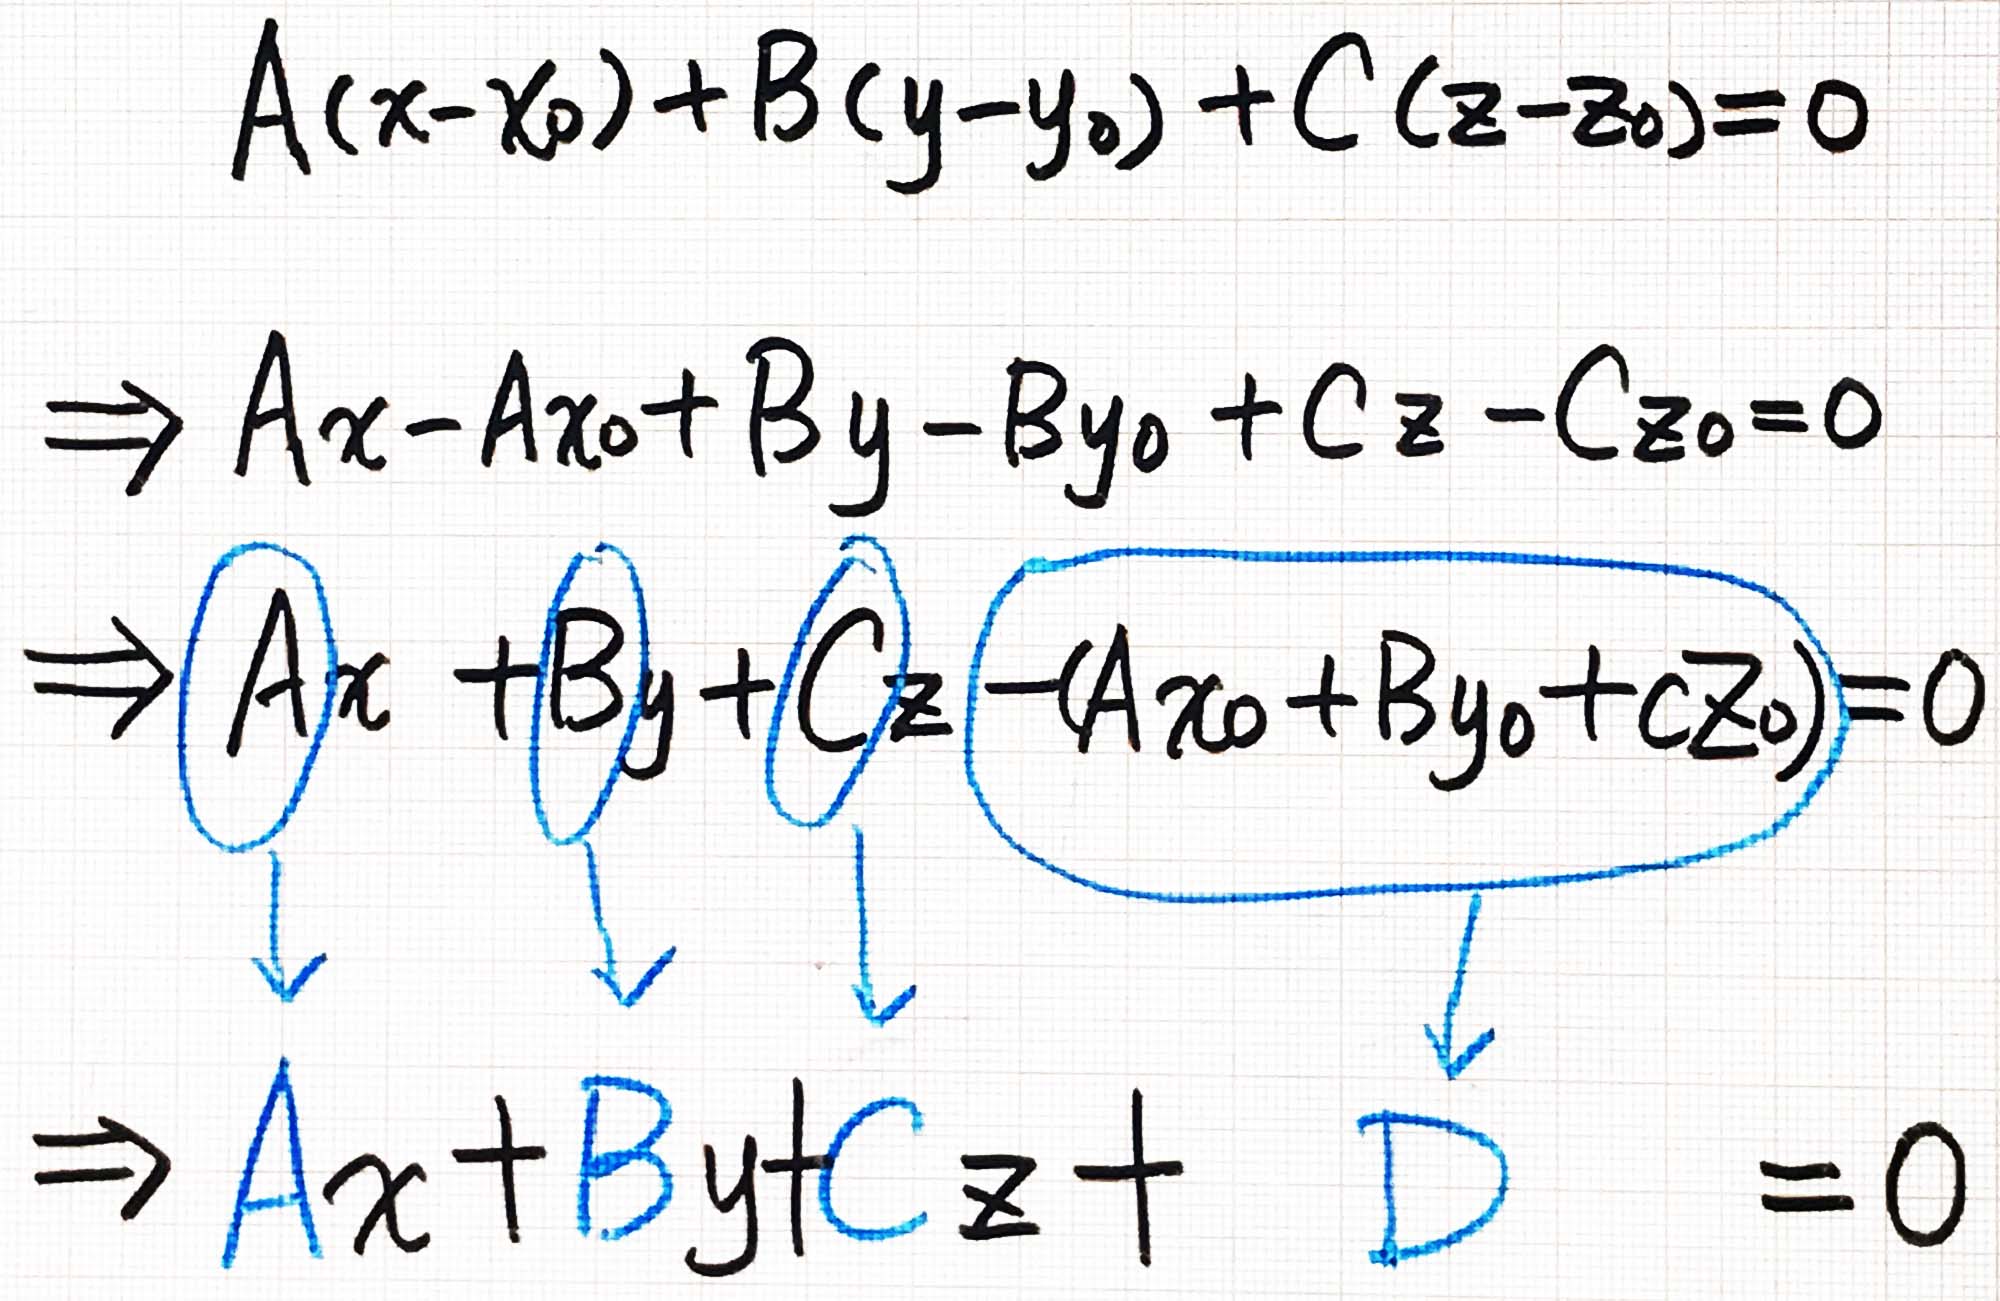 A(x-x₀)+B(y-y₀)+C(z-z₀)=0
⇒Ax-Ax₀+By-By₀+Cz-Cz₀=0
⇒Ax+By+Cz-(Ax₀+By₀+cZ₀)=0
⇒Ax+By+Cz+D=0